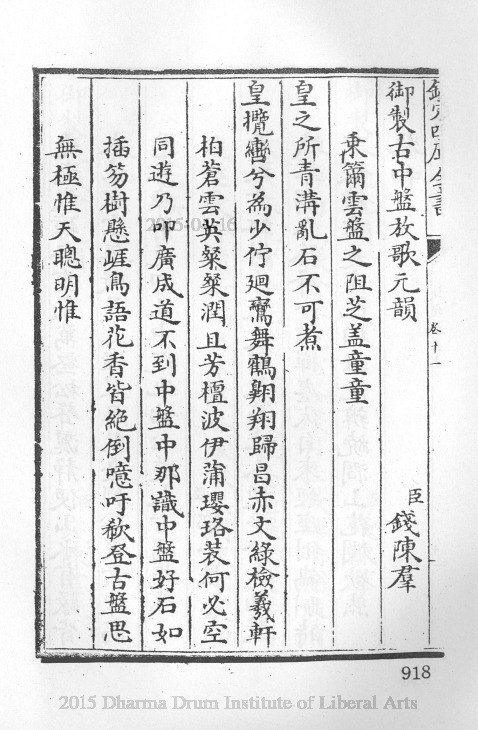 欽定四庫全書
卷十一
御製古中盤放歌元韻
臣錢陳羣
乘籋雲盤之阻芝盖童童
皇之所青溝亂石不可煮
皇攬轡兮為少佇迴鸞舞鶴翺翔歸昌赤文綠檢羲軒
柏蒼雲英粲粲潤且芳檀波伊蒲瓔珞裝何必空
同遊乃叩廣成道不到中盤中那識中盤好石如
插笏樹懸崖鳥語花香皆絕倒噫吁欷登古盤思
無極惟天聰明惟
918
2015 Dharma Drum Institute of Liberal Arts